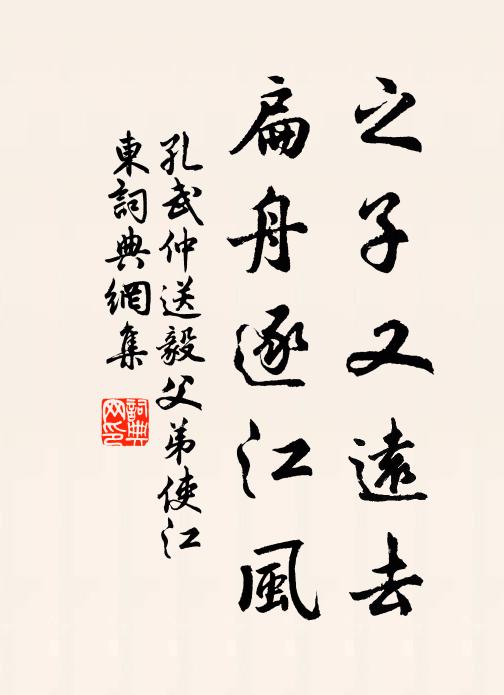 之子又遠去
扁舟逐江風
孔武仲送毅父弟使江
東詞典網集
詞典
网印